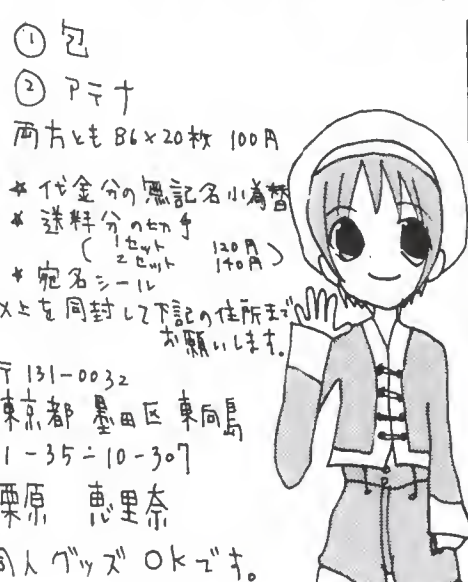 ① 包
② アテナ
両方とも B6×20枚 100円
* 代金分の無記名小為替
* 送料分の切手
( 1セット 120円
2セット 140円 )
* 宛名シール
以上を同封して下記の住所まで
お願いします。
〒131-0032
東京都 墨田区 東向島
1-35-10-307
栗原 恵里奈
同人グッズ OKです。